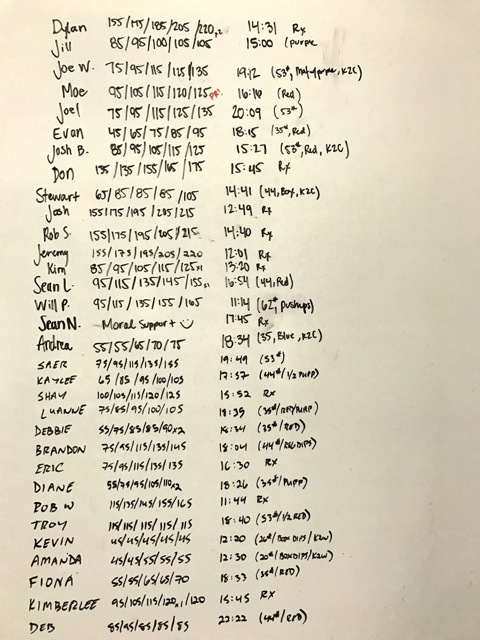 Dylan 155/175/185/205/220x2 14:31 Rx
Jill 85/95/100/105/105 15:00 (purple
Joe W. 75/95/115/125/135 (53#, K2C)
Moe 95/105/115/120/125 PR 16:16 (Red)
Joel 75/95/115/125/135 20:09 (53#)
Evan 45/65/75/85/95 18:15 (35#, Red)
Josh B. 85/95/105/115/125 15:27 (53#, Red, K2C)
Don 135/135/155/165/175 15:45 Rx
Stewart 65/85/85/85/105 14:41 (44, Box, K2C)
Josh 155/175/195/205/215 12:49 Rx
Rob S. 155/175/195/205/215 14:40 Rx
Jeremy 155/175/195/205/220 12:01 Rx
Kim 85/95/105/115/125x1 13:20 Rx
Sean L. 95/115/135/145/155x1 16:54 (44, Red)
Will P. 95/115/135/155/165 11:14 (62#, Pushups)
Sean N. Moral Support 17:45 Rx
Andrea 55/55/65/70/75 18:34 (35, Blue, K2C)
SAER 75/95/115/135/155 19:49 (53#)
KAYLEE 65/85/95/100/105 17:57 (44#/1/2 PURP)
SHAY 100/105/115/120/125 15:52 Rx
LUANNE 75/85/95/100/105 18:35 (35#/RED/PURP)
DEBBIE 55/75/85/85/90x2 (35#/RED)
BRANDON 75/95/115/135/145 18:04 (44#/RED DIPS)
ERIC 75/95/115/135/135 16:30 Rx
DIANE 55/75/95/105/110x2 18:26 (35#/PURP)
ROB W 115/135/145/155/165 11:44 Rx
TROY 115/115/115/115/115 18:40 (53#/1/2 RED)
KEVIN 45/45/45/45/45 12:20 (26#/BOX DIPS/K2W)
AMANDA 45/45/55/55/55 12:30 (20#/BOX DIPS/K2W)
FIONA 55/55/65/65/70 18:53 (35#/RED)
KIMBERLEE 95/105/115/120x1/120 15:45 Rx
DEB 85/95/85/85/85 22:22 (44#/RED)